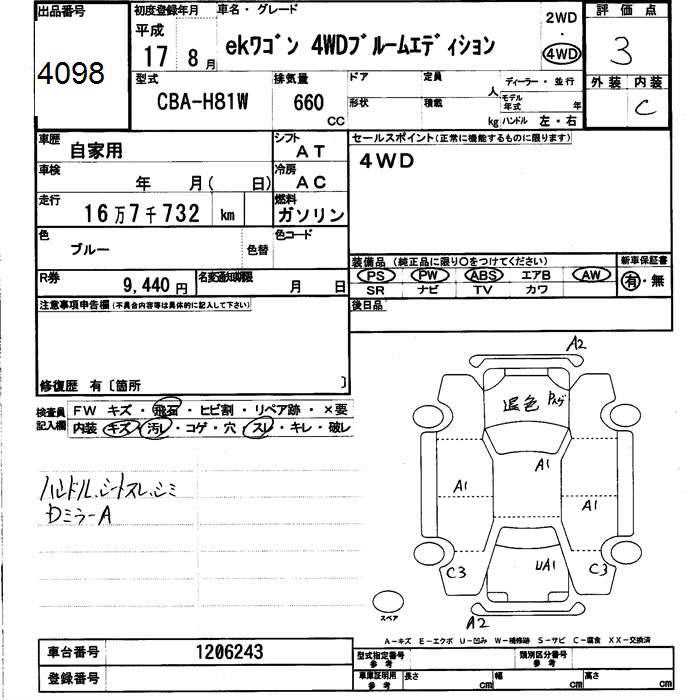 出品番号
4098
初度登録年月
平成
17 8月
車名・グレード
ekワゴン 4WDブルームエディション
2WD
・
4WD
評価点
3
外装 内装
C
型式
CBA-H81W
排気量
660
CC
ドア
定員
人
形状
積載
kg
ディーラー・並行
モデル年式 年
ハンドル 左・右
車歴
自家用
シフト
AT
車検
年 月( 日)
冷房
AC
走行
16万7千732 km
燃料
ガソリン
色
ブルー
色替
色コード
R券
9,440円
名変通知期限
月 日
セールスポイント(正常に機能するものに限ります)
4WD
装備品(純正品に限り○をつけてください)
PS PW ABS エアB AW
SR ナビ TV カワ
新車保証書
有・無
後日品
注意事項申告欄(不具合内容等は具体的に記入して下さい)
修復歴 有〔箇所 〕
検査員記入欄
FW キズ・飛石・ヒビ割・リペア跡・×要
内装・キズ・汚レ・コゲ・穴・スレ・キレ・破レ
ハンドル、シートスレ、シミ
Dミラ-A
A2
退色
A1
A1
A1
UA1
C3
C3
A2
スペア
A-キズ E-エクボ U-凹み W-補修跡 S-サビ C-腐食 XX-交換済
車台番号
1206243
登録番号
型式指定番号
参考
類別区分番号
参考
車庫証明用
参考
長さ cm
幅 cm
高さ cm